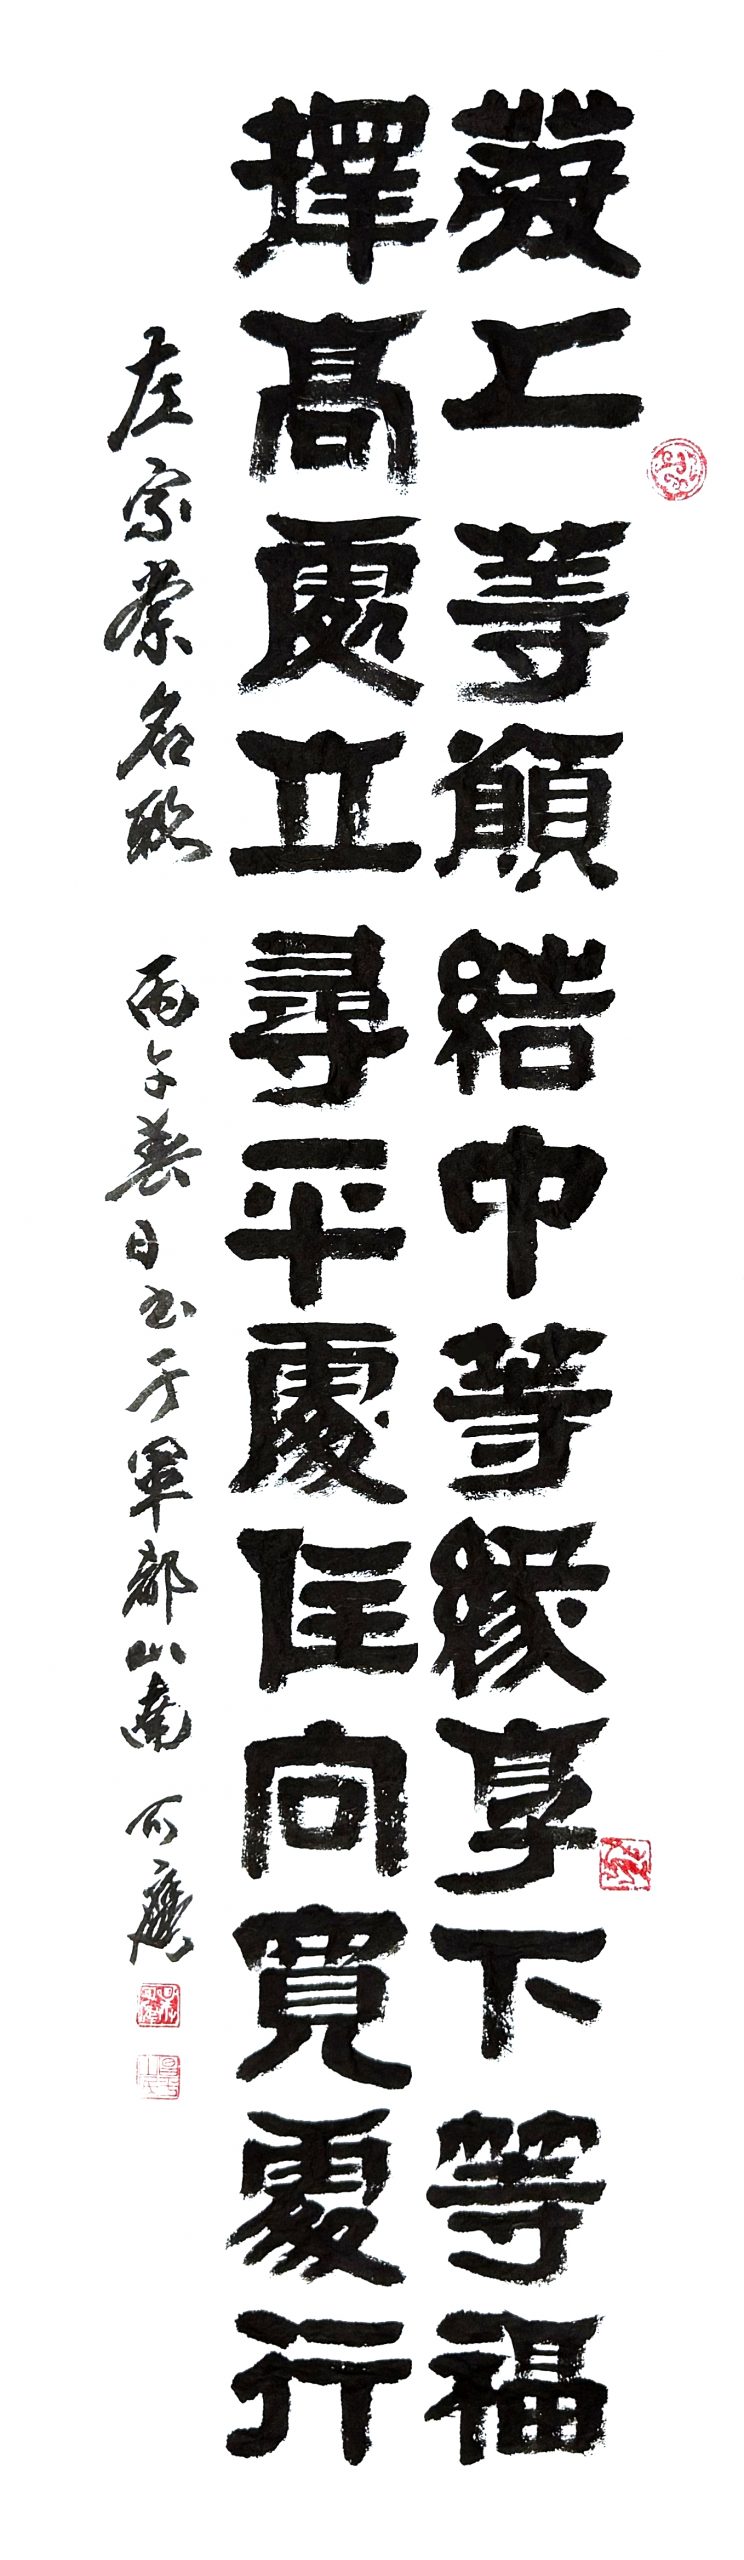 發上等願結中等緣享下等福
擇高處立尋平處住向寬處行
左宗棠名聯 丙午春日書于軍都山南 石鷹